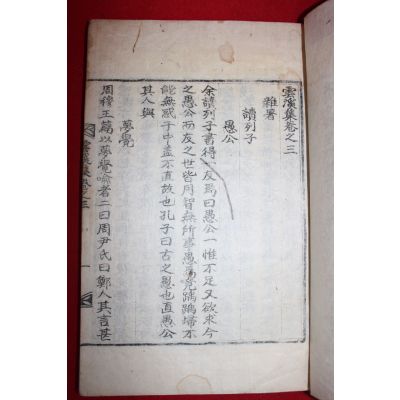 雲溪集卷之三
雜著
讀列子
愚公
余讀列子書得一友焉曰愚公一惟不足又欲求今
之愚公而友之世皆用智無所事愚焉凭踽踽唏不
能無感于中盖不直故也孔子曰古之愚也直愚公
其人與
夢覺
周穆王篇以夢覺喩者二曰周尹氏曰鄭人其言甚
雲溪集卷之三
一